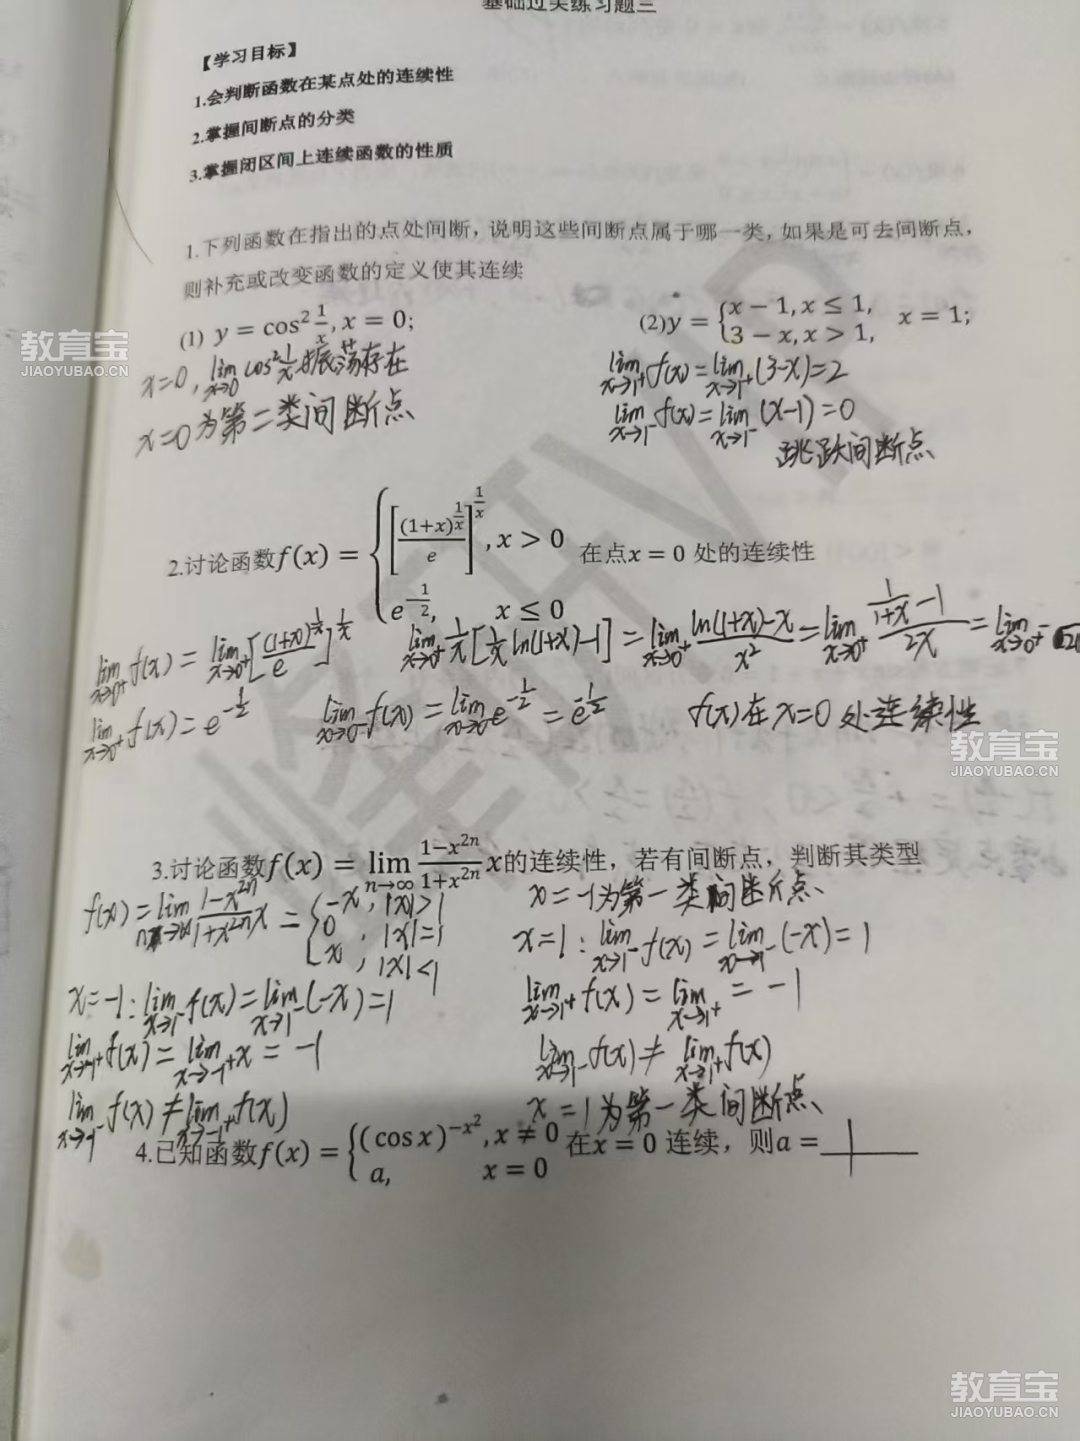 基础过关练习题三
【学习目标】
1.会判断函数在某点处的连续性
2.掌握间断点的分类
3.掌握闭区间上连续函数的性质
1.下列函数在指出的点处间断，说明这些间断点属于哪一类，如果是可去间断点，
则补充或改变函数的定义使其连续
(1) y = cos² 1/x, x = 0;
(2)y = {x − 1, x ≤ 1, 3 − x, x > 1, x = 1;
x=0, lim x→0 cos² 1/x 振荡存在
x=0为第二类间断点
lim x→1⁺ f(x) = lim x→1⁺ (3-x) = 2
lim x→1⁻ f(x) = lim x→1⁻ (x-1) = 0
跳跃间断点
2.讨论函数f(x) = {[(1+x)^(1/x) / e]^(1/x), x > 0 e^(-1/2), x ≤ 0 在点x = 0 处的连续性
lim x→0⁺ f(x) = lim x→0⁺ [(1+x)^(1/x) / e]^(1/x)
lim x→0⁺ 1/x [1/x ln(1+x) -1] = lim x→0⁺ (ln(1+x)-x)/x² = lim x→0⁺ (1/(1+x) -1)/2x = lim x→0⁺ -
lim x→0⁺ f(x) = e^(-1/2)
lim x→0⁻ f(x) = lim x→0⁻ e^(-1/2) = e^(-1/2)
f(x)在x=0处连续性
3.讨论函数f(x) = lim n→∞ (1−x²ⁿ)/(1+x²ⁿ) x的连续性，若有间断点，判断其类型
f(x) = lim n→∞ (1-x²ⁿ)/(1+x²ⁿ) x = {-x, |x|>1 0, |x|=1 x, |x|<1
x=-1为第一类间断点
x=-1: lim x→1⁻ f(x) = lim x→1⁻ (-x) = 1
lim x→-1⁺ f(x) = lim x→-1⁺ x = -1
lim x→-1⁻ f(x) ≠ lim x→-1⁺ f(x)
x=1: lim x→1⁻ f(x) = lim x→1⁻ (-x) = 1
lim x→1⁺ f(x) = lim x→1⁺ = -1
lim x→1⁻ f(x) ≠ lim x→1⁺ f(x)
x=1为第一类间断点
4.已知函数f(x) = {(cos x)^(−x²), x ≠ 0 a, x = 0 在x = 0 连续，则a = 1
教育宝
JIAOYUBAO.CN
教育宝
JIAOYUBAO.CN
教育宝
JIAOYUBAO.CN